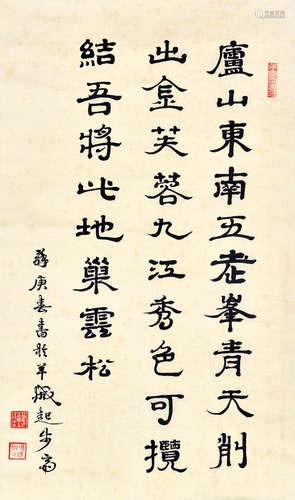 廬山東南五老峯青天削
出金芙蓉九江秀色可攬
結吾將此地巢雲松
庚春書於羊城起步齋